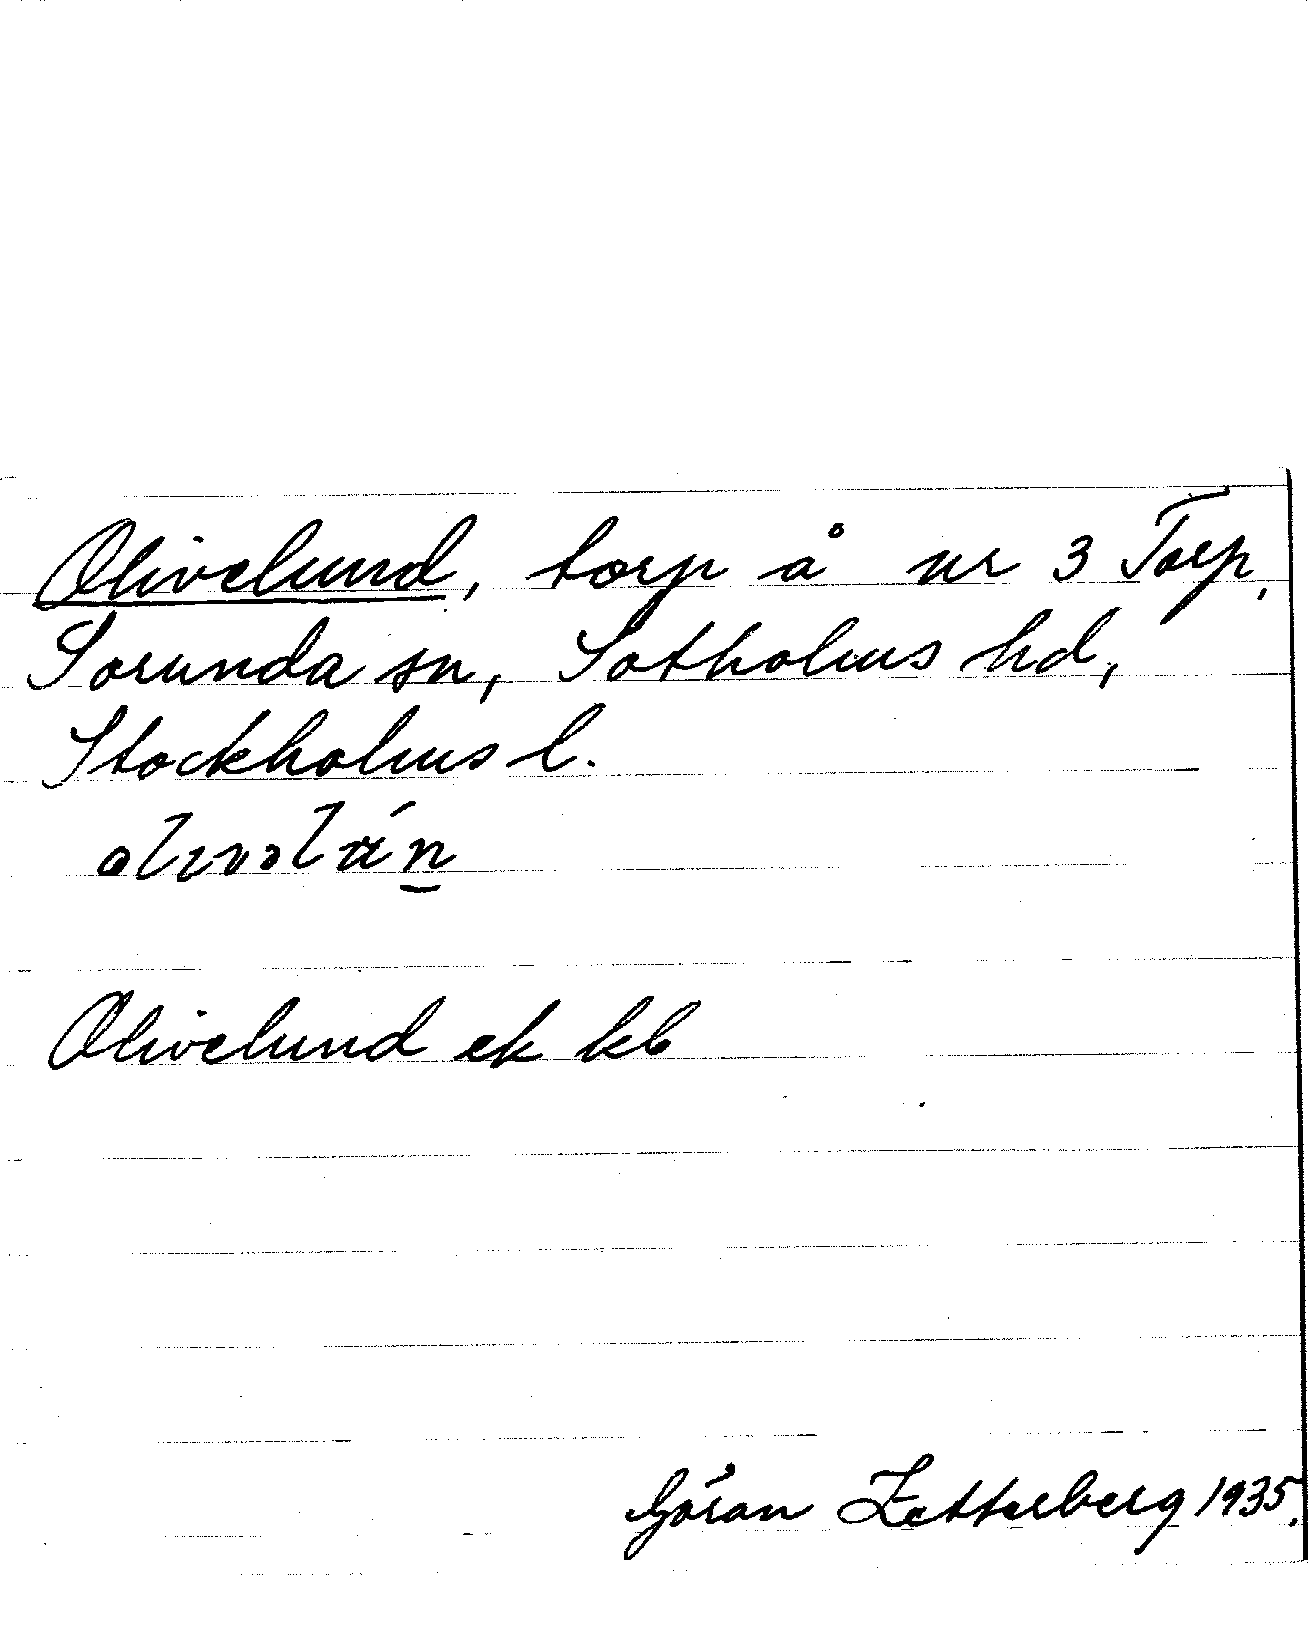 Olivelund, torp å nr 3 Torp,
Sorunda sn, Sotholms hd,
Stockholms l.
Olivelund ek kb
Göran Zetterberg 1935.